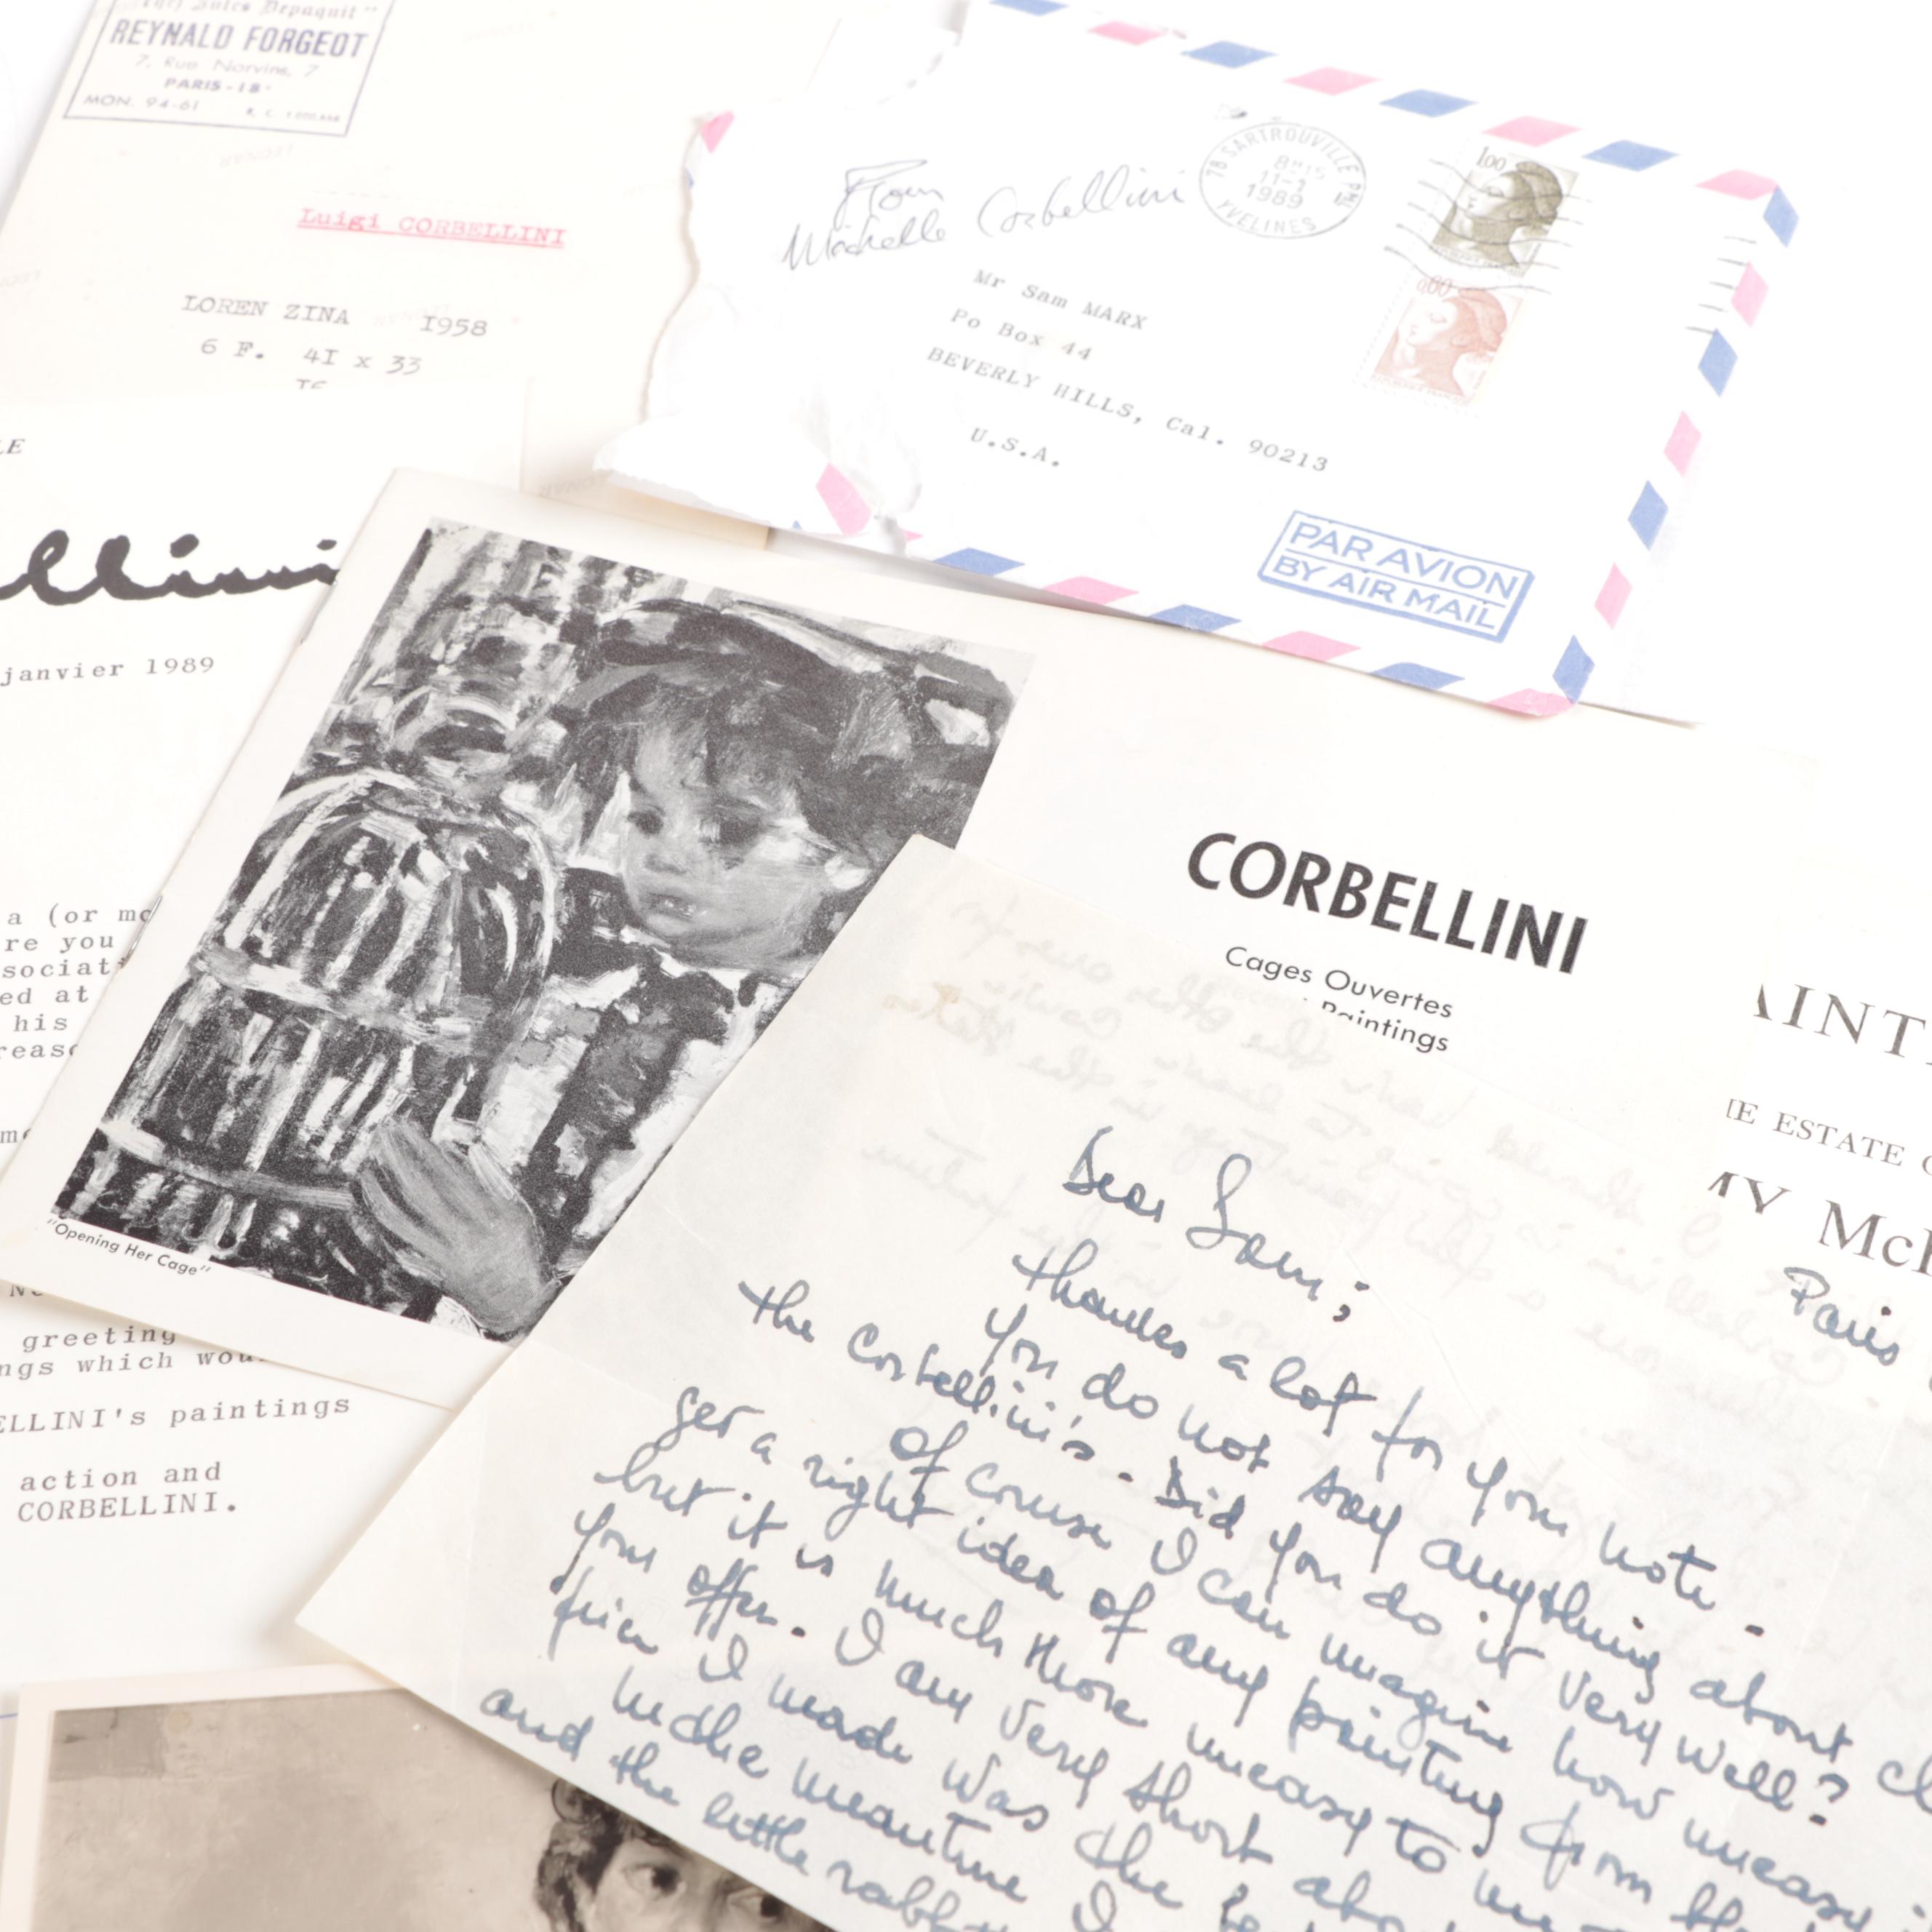 Chez Jules Depaquit"
REYNALD FORGEOT
7, Rue Norvins, 7
PARIS-18e
MON. 94-61
R. C.
Luigi CORBELLINI
LOREN ZINA I958
6 F. 4I x 33
From
Michelle Corbellini
78 SARTROUVILLE PAL
8H15
11-1
1989
YVELINES
1,00
0,60
Mr Sam MARX
Po Box 44
BEVERLY HILLS, Cal. 90213
U.S.A.
PAR AVION
BY AIR MAIL
LE
llini
janvier 1989
a (or mo
re you
sociati
ed at
his
reaso
greeting
ngs which wou
ELLINI's paintings
action and
CORBELLINI.
"Opening Her Cage"
CORBELLINI
Cages Ouvertes
Paintings
AINT
HE ESTATE O
MY McH
Paris
Dear Sam;
thanks a lot for your note.
You do not say anything about
the Corbellini's. Did you do it very well?
of course I can imagine how uneasy
get a right idea of any painting from
but it is much more uneasy to
your offer. I am very short about
price I made was the
In the meantime I
and the little